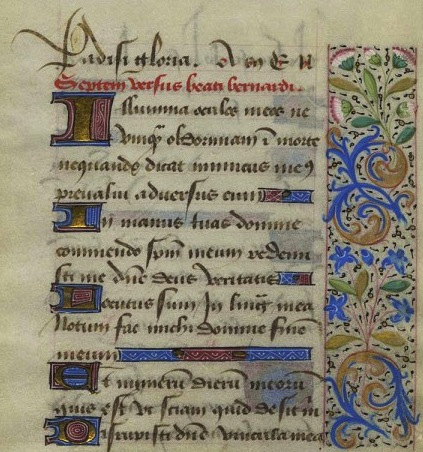 Padisi gloria. A m E N
Septem versus beati bernardi.
Illumina oculos meos ne
unq̃ obdormiam ī morte
nequando dicat inimicus meꝰ
prevalui adversus eum
In manus tuas domine
commendo sp̄m meum redemi
sti me dn̄e deus veritatis
Locutus sum in ling̃ mea
Notum fac michi domine fine
meum
Et numerū dierū meorū
quis est ut sciam quid desit m̄
Dirupisti dn̄e vincula mea